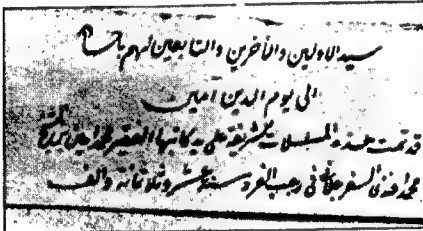 سيد الاولين والآخرين والتابعين لهم باحسان
الى يوم الدين امين
قد تمت هذه المسلسلات الشريفة على يد كاتبها الفقير محمد امين بن
محمد افندى السفرجلانى فى رجب الفرد سنة عشر وثلاثمائة والف